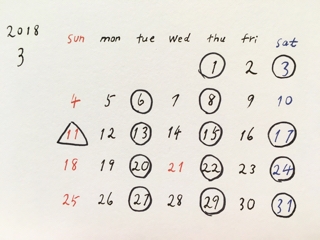 2018
3
sun mon tue wed thu fri sat
1 2 3
4 5 6 7 8 9 10
11 12 13 14 15 16 17
18 19 20 21 22 23 24
25 26 27 28 29 30 31